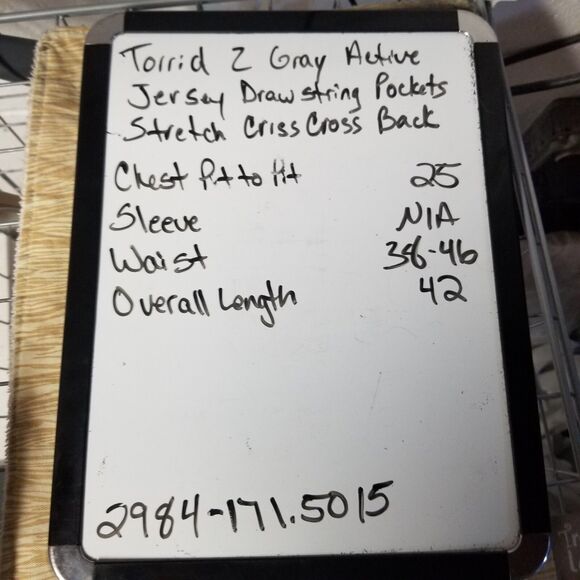 Torrid 2 Gray Active
Jersey Drawstring Pockets
Stretch Criss Cross Back
Chest Pit to Pit 25
Sleeve N/A
Waist 38-46
Overall Length 42
2984-171.5015